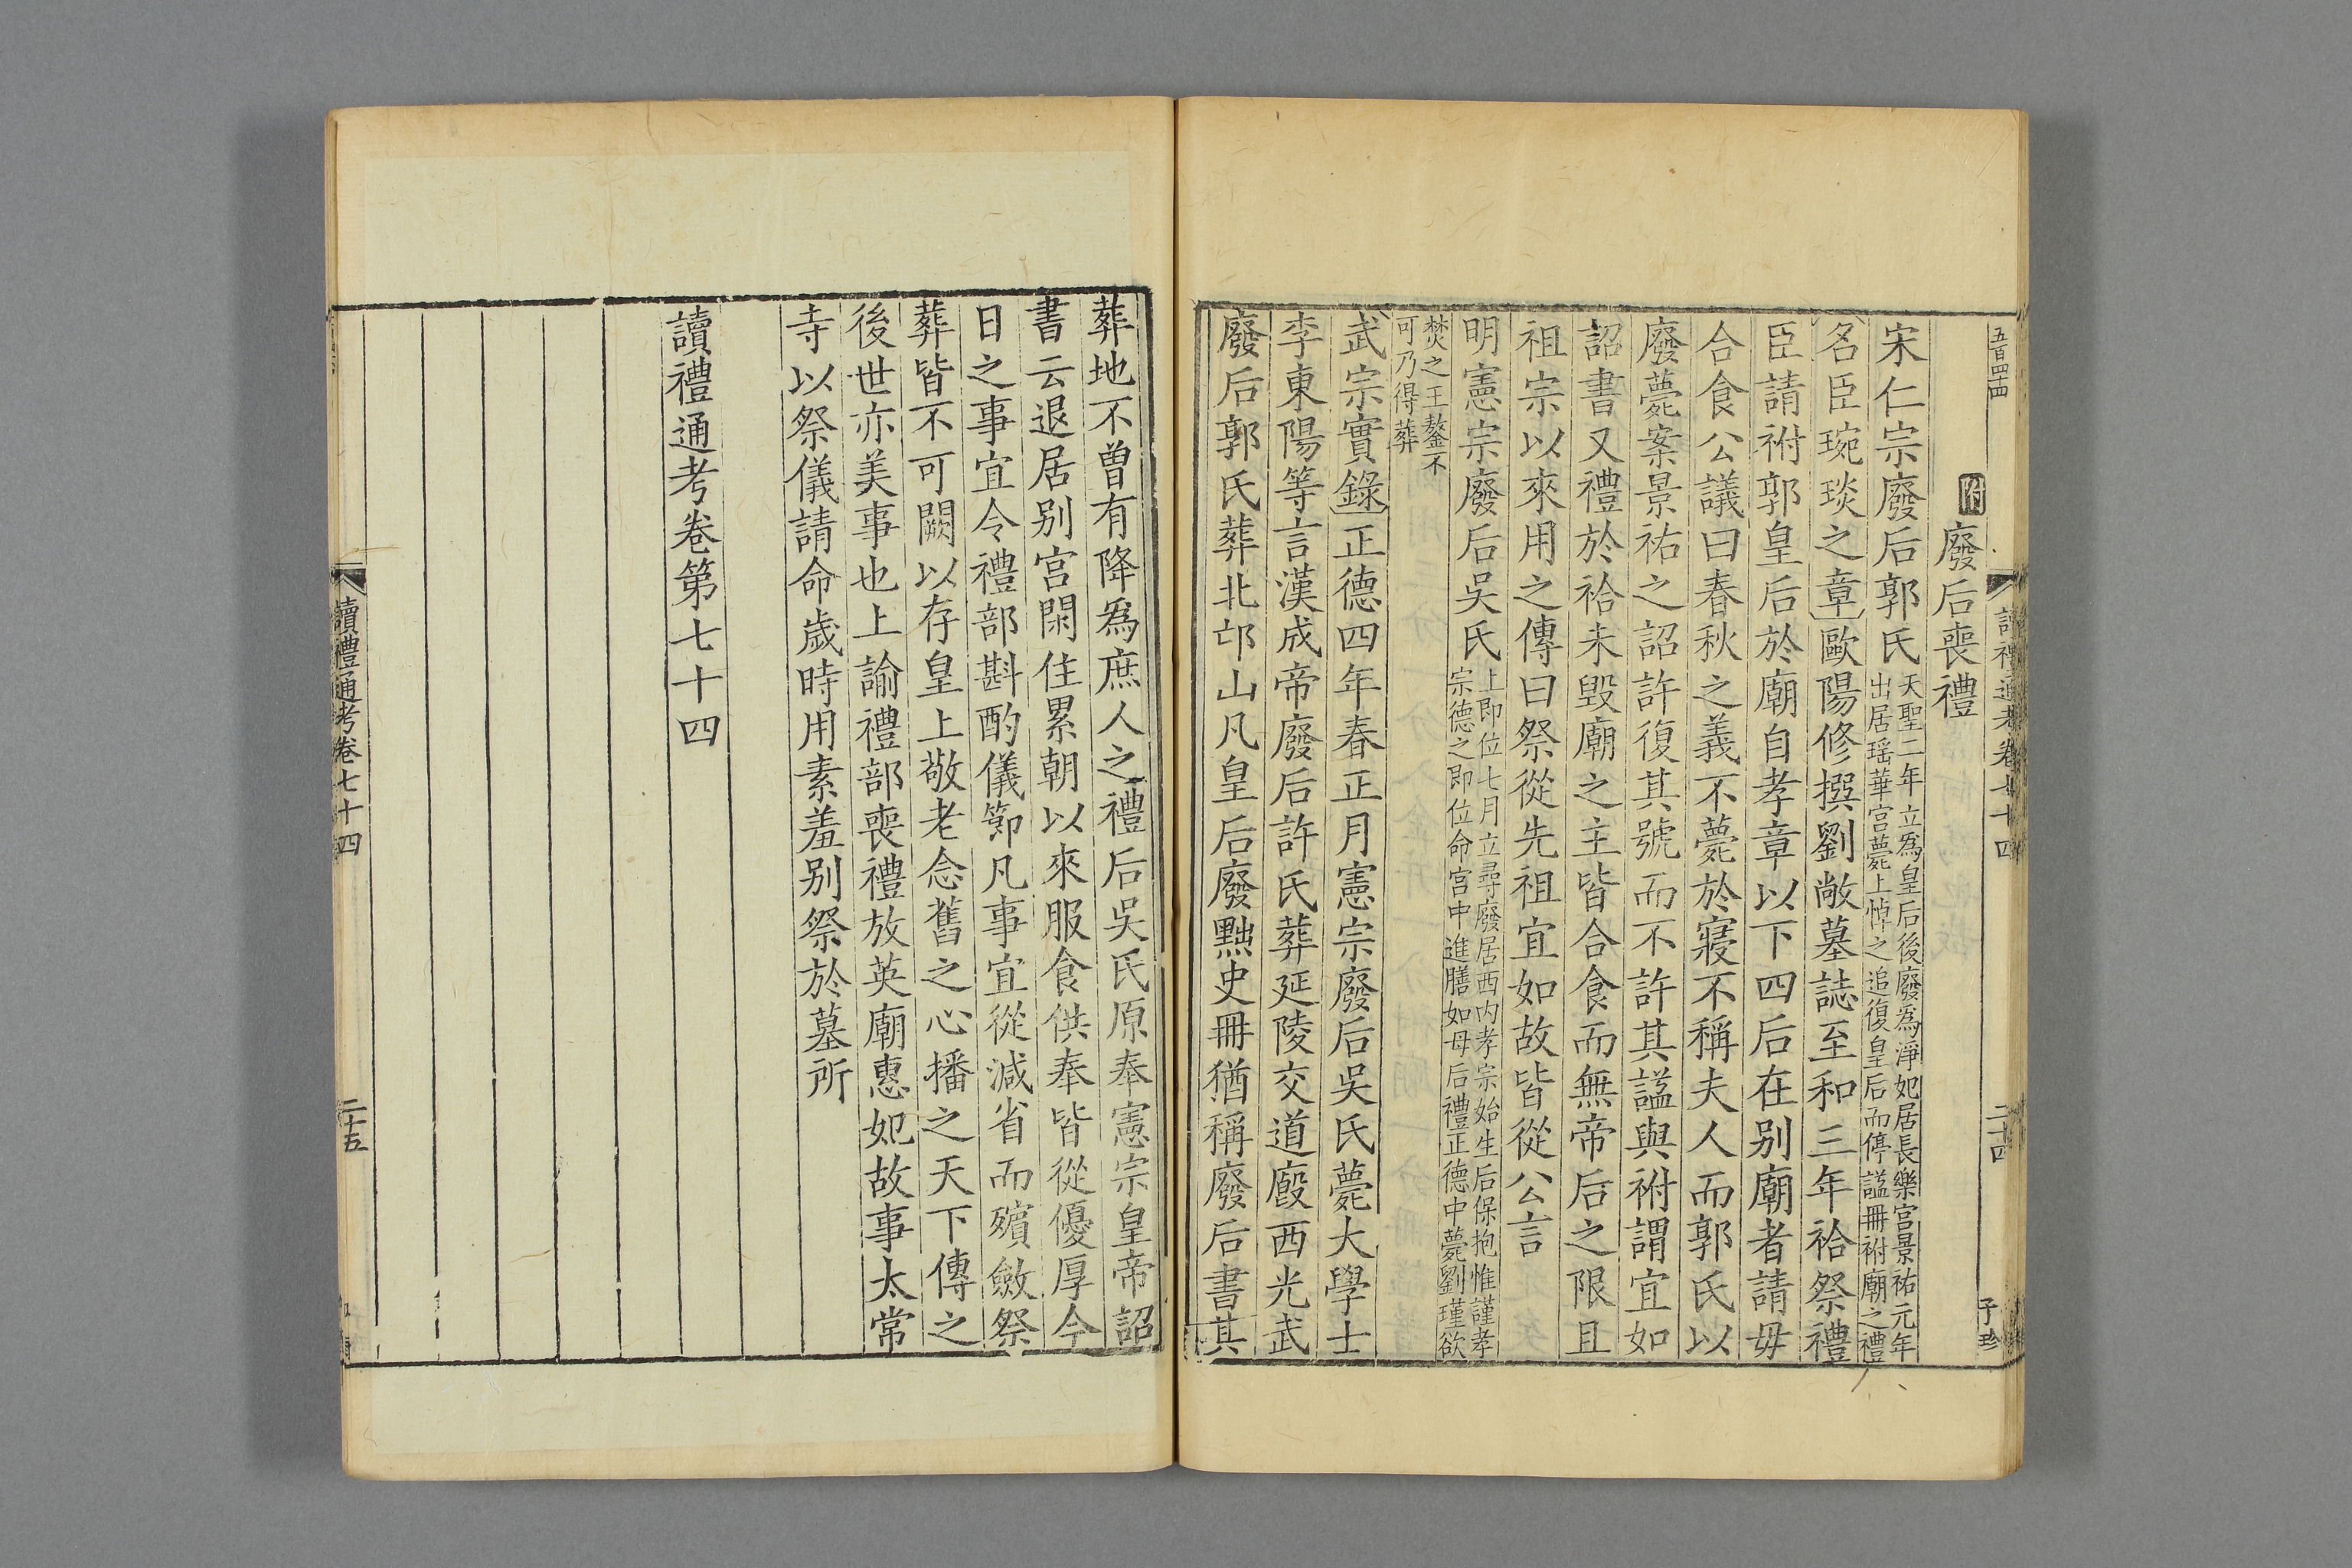 五百四十四
讀禮通考卷七十四
二十四
子珍
附 廢后喪禮
宋仁宗廢后郭氏 天聖二年立為皇后後廢為淨妃居長樂宮景祐元年
出居瑶華宮薨上悼之追復皇后而停謚冊祔廟之禮
名臣琬琰之章 歐陽修撰劉敞墓誌至和三年祫祭禮
臣請祔郭皇后於廟自孝章以下四后在别廟者請毋
合食公議曰春秋之義不薨於寢不稱夫人而郭氏以
廢薨案景祐之詔許復其號而不許其謚與祔謂宜如
詔書又禮於祫未毀廟之主皆合食而無帝后之限且
祖宗以來用之傳曰祭從先祖宜如故皆從公言
明憲宗廢后吳氏 上即位七月立尋廢居西内孝宗始生后保抱惟謹孝
宗德之即位命宮中進膳如母后禮正德中薨劉瑾欲
焚之王鏊不
可乃得葬
武宗實錄 正德四年春正月憲宗廢后吳氏薨大學士
李東陽等言漢成帝廢后許氏葬延陵交道廄西光武
廢后郭氏葬北邙山凡皇后廢黜史冊猶稱廢后書其
葬地不曾有降為庶人之禮后吳氏原奉憲宗皇帝詔
書云退居别宮閑住累朝以來服食供奉皆從優厚今
日之事宜令禮部斟酌儀節凡事宜從減省而殯斂祭
葬皆不可闕以存皇上敬老念舊之心播之天下傳之
後世亦美事也上諭禮部喪禮放英廟惠妃故事太常
寺以祭儀請命歲時用素羞别祭於墓所
讀禮通考卷第七十四
讀禮通考卷七十四
二十五